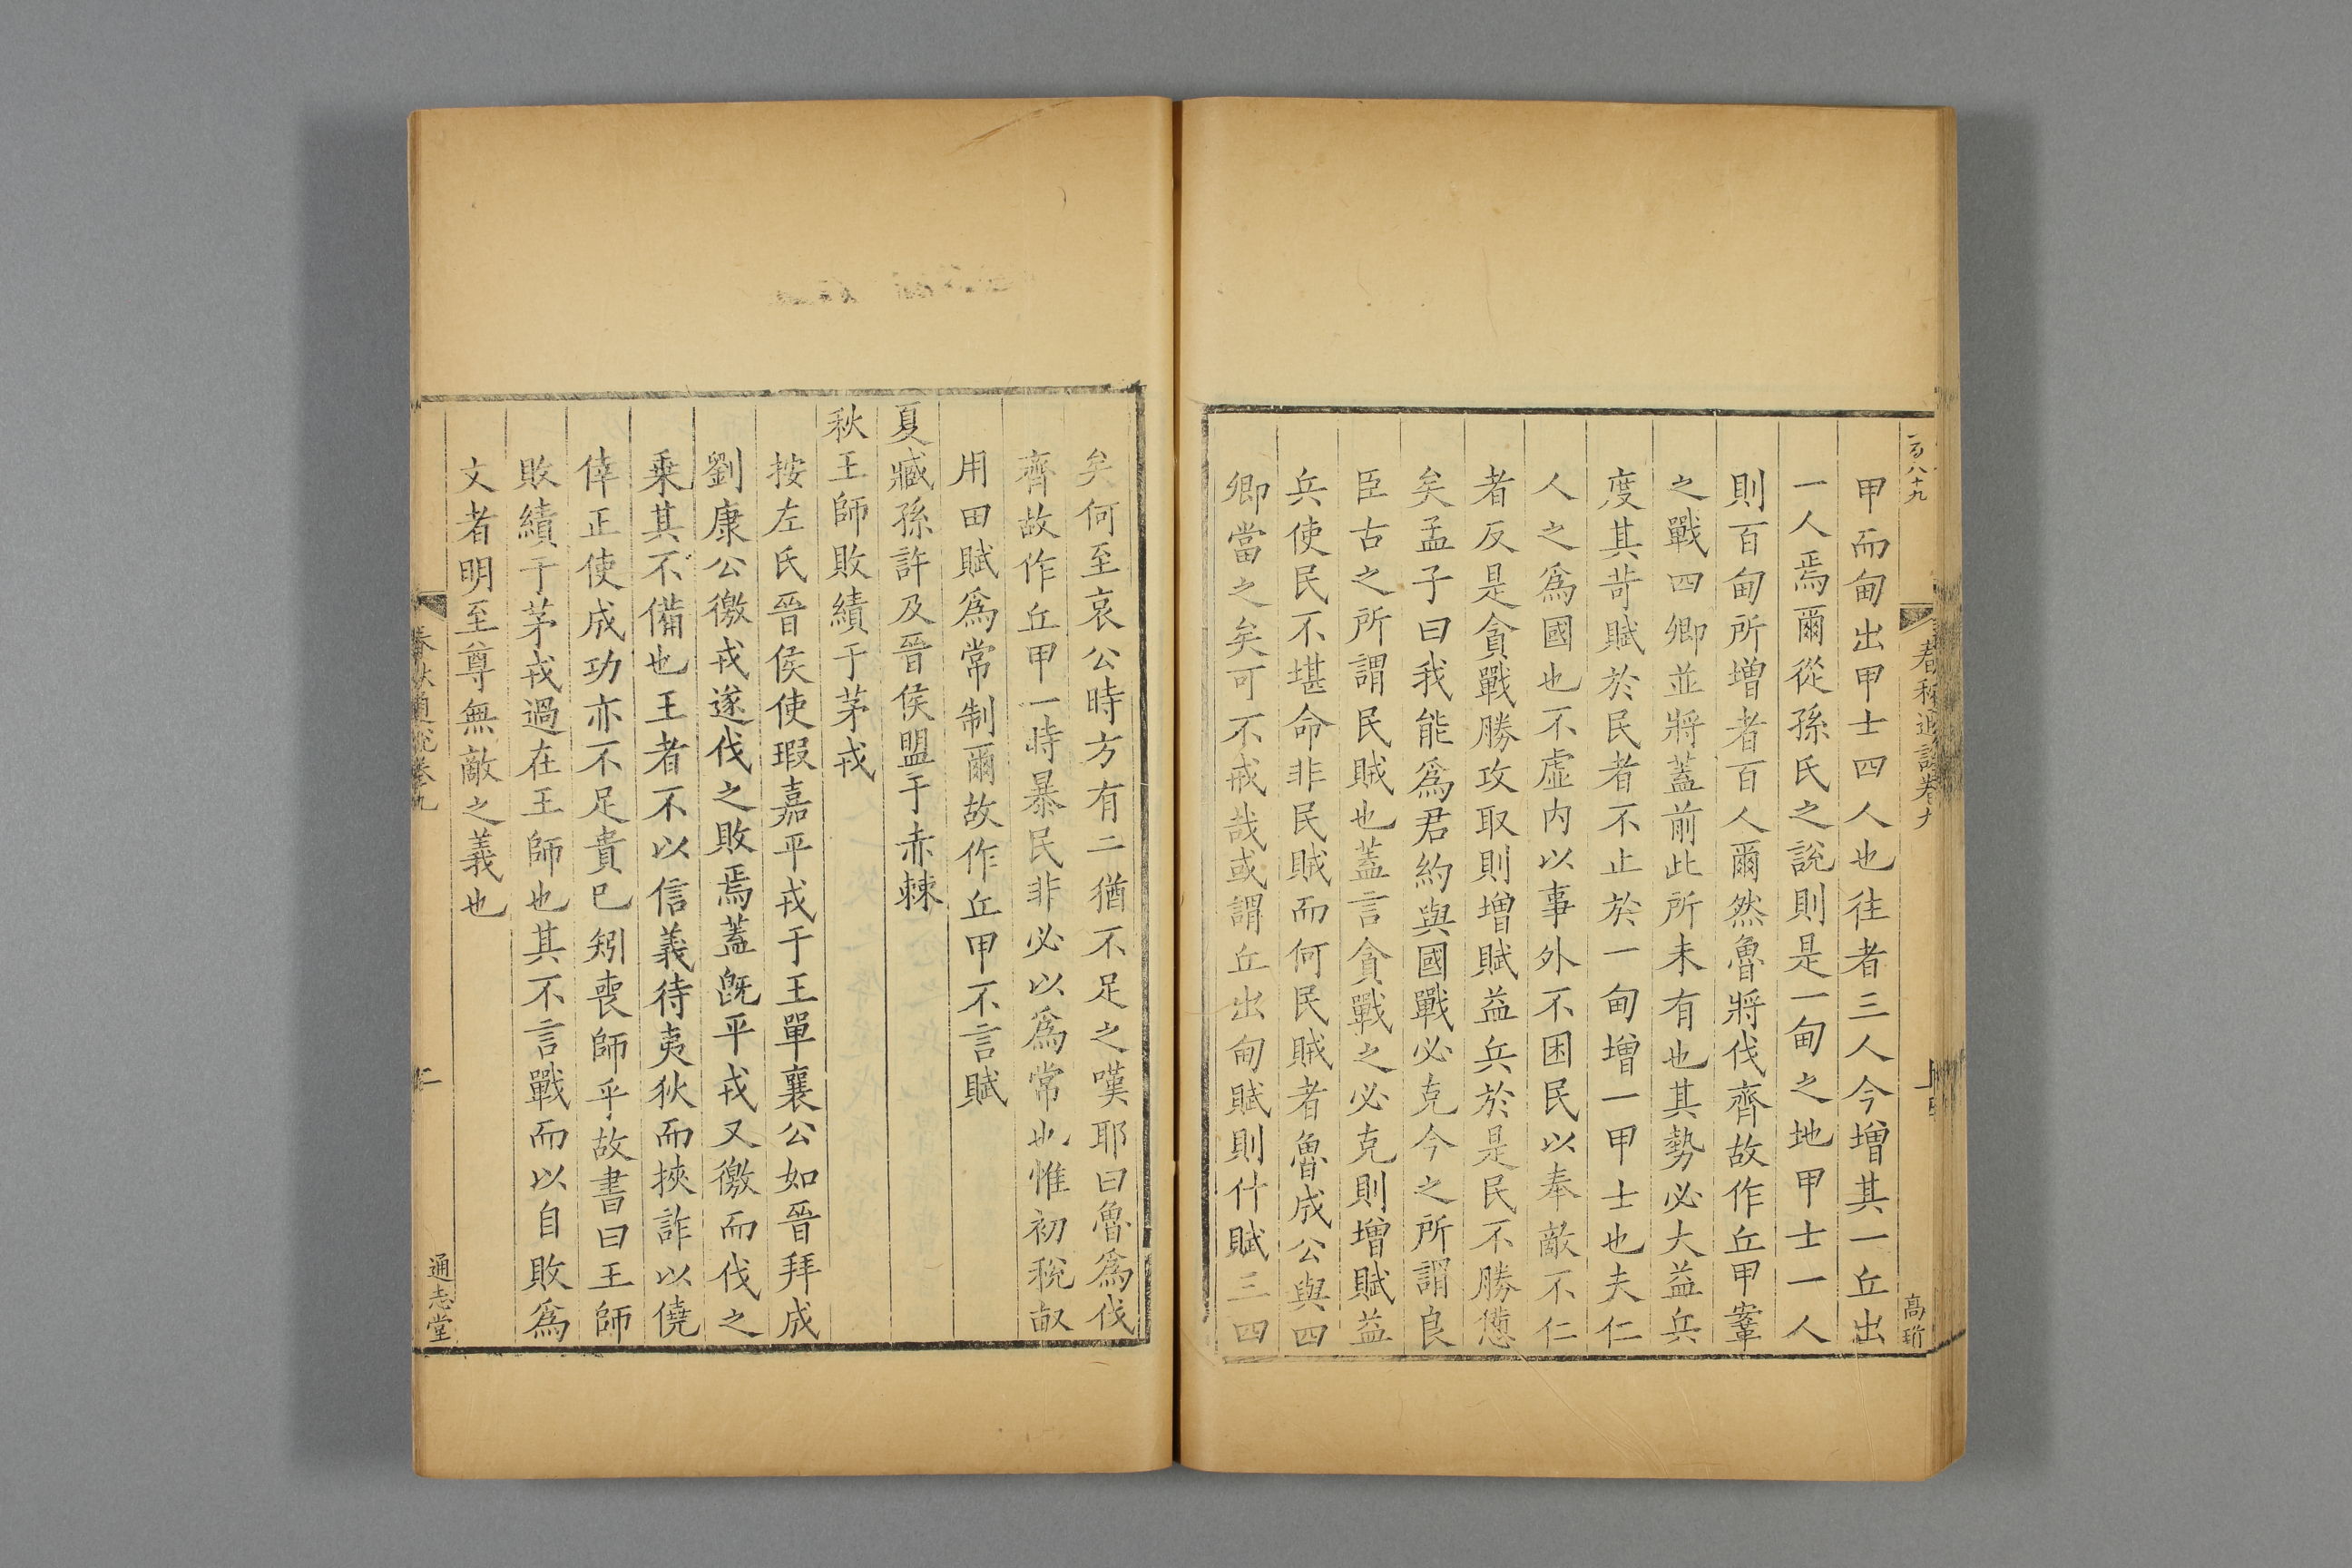 百八十九
春秋通說卷九
高珩
甲而甸出甲士四人也往者三人今增其一丘出
一人焉爾從孫氏之說則是一甸之地甲士一人
則百甸所增者百人爾然魯將伐齊故作丘甲鞌
之戰四卿並將蓋前此所未有也其勢必大益兵
度其苛賦於民者不止於一甸增一甲士也夫仁
人之爲國也不虛内以事外不困民以奉敵不仁
者反是貪戰勝攻取則增賦益兵於是民不勝憊
矣孟子曰我能爲君約與國戰必克今之所謂良
臣古之所謂民賊也蓋言貪戰之必克則增賦益
兵使民不堪命非民賊而何民賊者魯成公與四
卿當之矣可不戒哉或謂丘出甸賦則什賦三四
矣何至哀公時方有二猶不足之嘆耶曰魯爲伐
齊故作丘甲一時暴民非必以爲常也惟初稅畝
用田賦爲常制爾故作丘甲不言賦
夏臧孫許及晉侯盟于赤棘
秋王師敗績于茅戎
按左氏晉侯使瑕嘉平戎于王單襄公如晉拜成
劉康公徼戎遂伐之敗焉蓋旣平戎又徼而伐之
乗其不備也王者不以信義待夷狄而挾詐以僥
倖正使成功亦不足貴巳矧喪師乎故書曰王師
敗績于茅戎過在王師也其不言戰而以自敗爲
文者明至尊無敵之義也
春秋通說卷九
二
通志堂